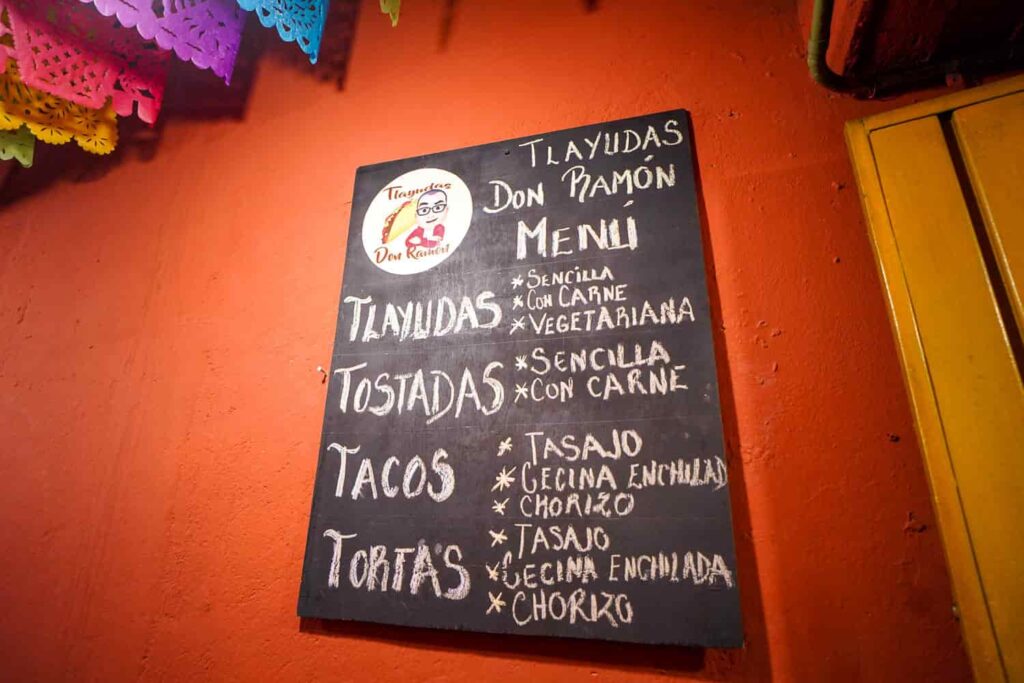 TLAYUDAS
DON RAMÓN
MENÚ
Tlayudas
Don Ramón
TLAYUDAS
*SENCILLA
*CON CARNE
*VEGETARIANA
TOSTADAS
*SENCILLA
*CON CARNE
TACOS
* TASAJO
* CECINA ENCHILAD
* CHORIZO
TORTAS
* TASAJO
* CECINA ENCHILADA
* CHORIZO